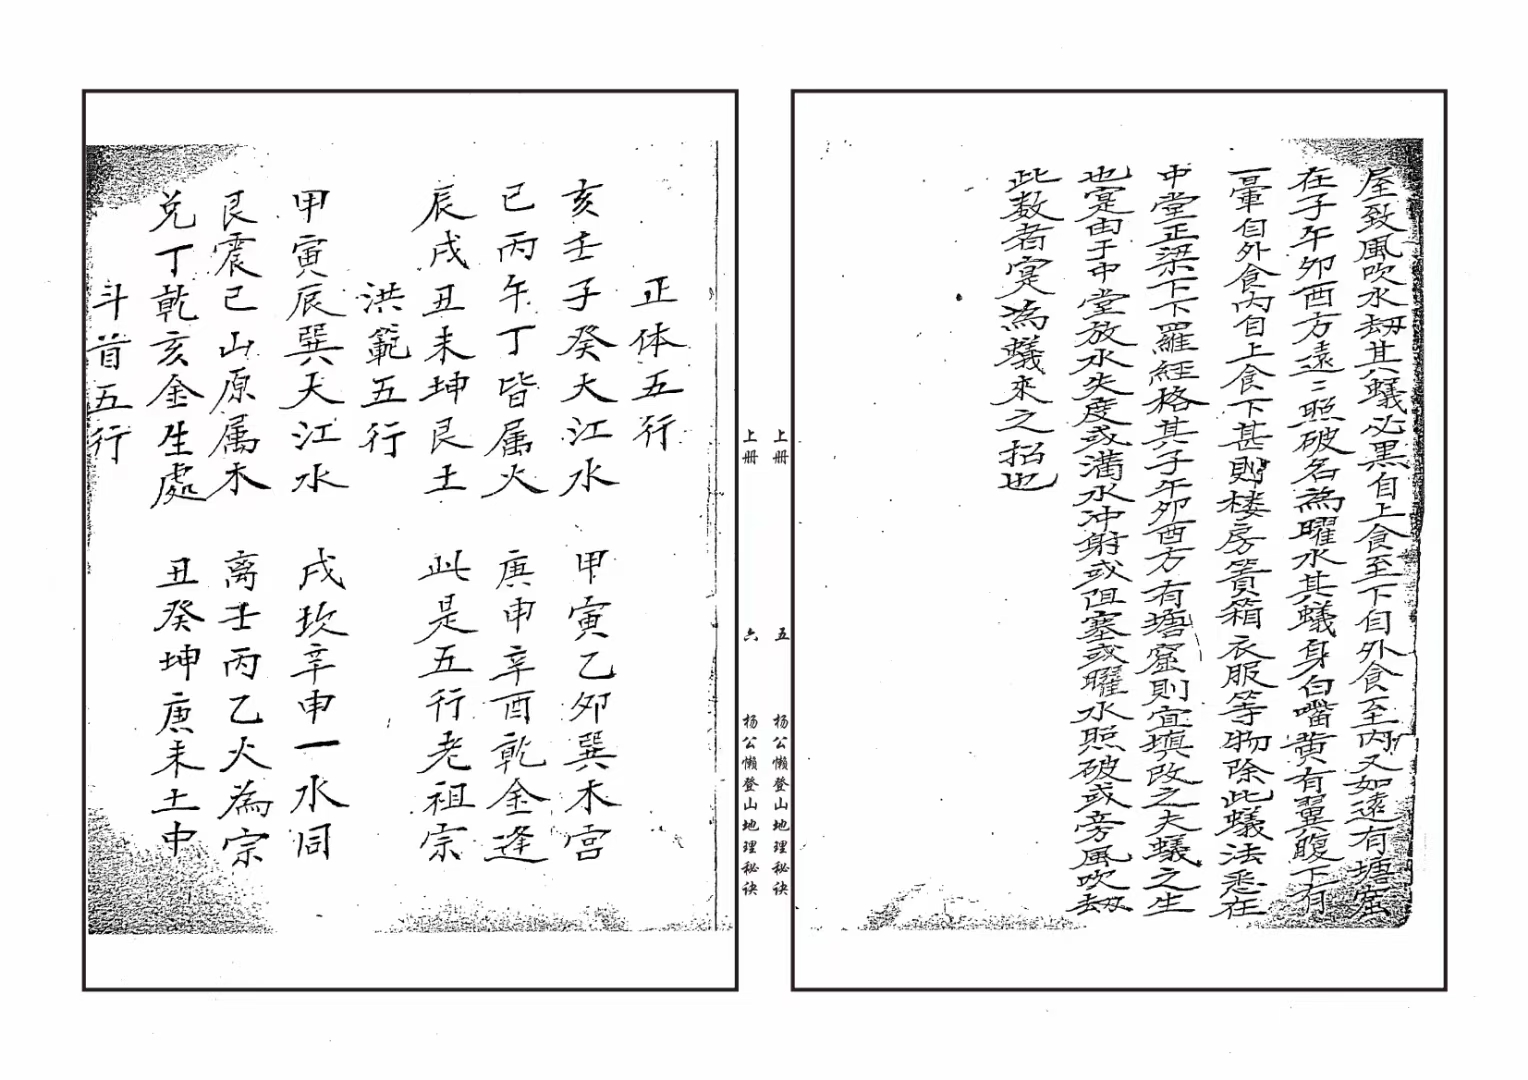 屋致風吹水劫其蟻必黑自上食至下自外食至内又如遠有塘窟
在子午卯酉方遠〻照破名為曜水其蟻身白嘴黄有翼腹下有
一暈自外食内自上食下甚則楼房簀箱衣服等物除此蟻法悉在
中堂正梁下下羅経格其子午卯酉方有塘窟則宜填改之夫蟻之生
也寔由于中堂放水失度或溝水冲射或阻塞或曜水照破或旁風吹劫
此数者寔為蟻來之招也
上册 五 杨公懒登山地理秘诀
上册 六 杨公懒登山地理秘诀
正体五行
亥壬子癸大江水 甲寅乙卯巽木宫
巳丙午丁皆属火 庚申辛酉乾金逢
辰戌丑未坤艮土 此是五行老祖宗
洪範五行
甲寅辰巽大江水 戌坎辛申一水同
艮震巳山原属木 离壬丙乙火為宗
兑丁乾亥金生處 丑癸坤庚未土中
斗首五行